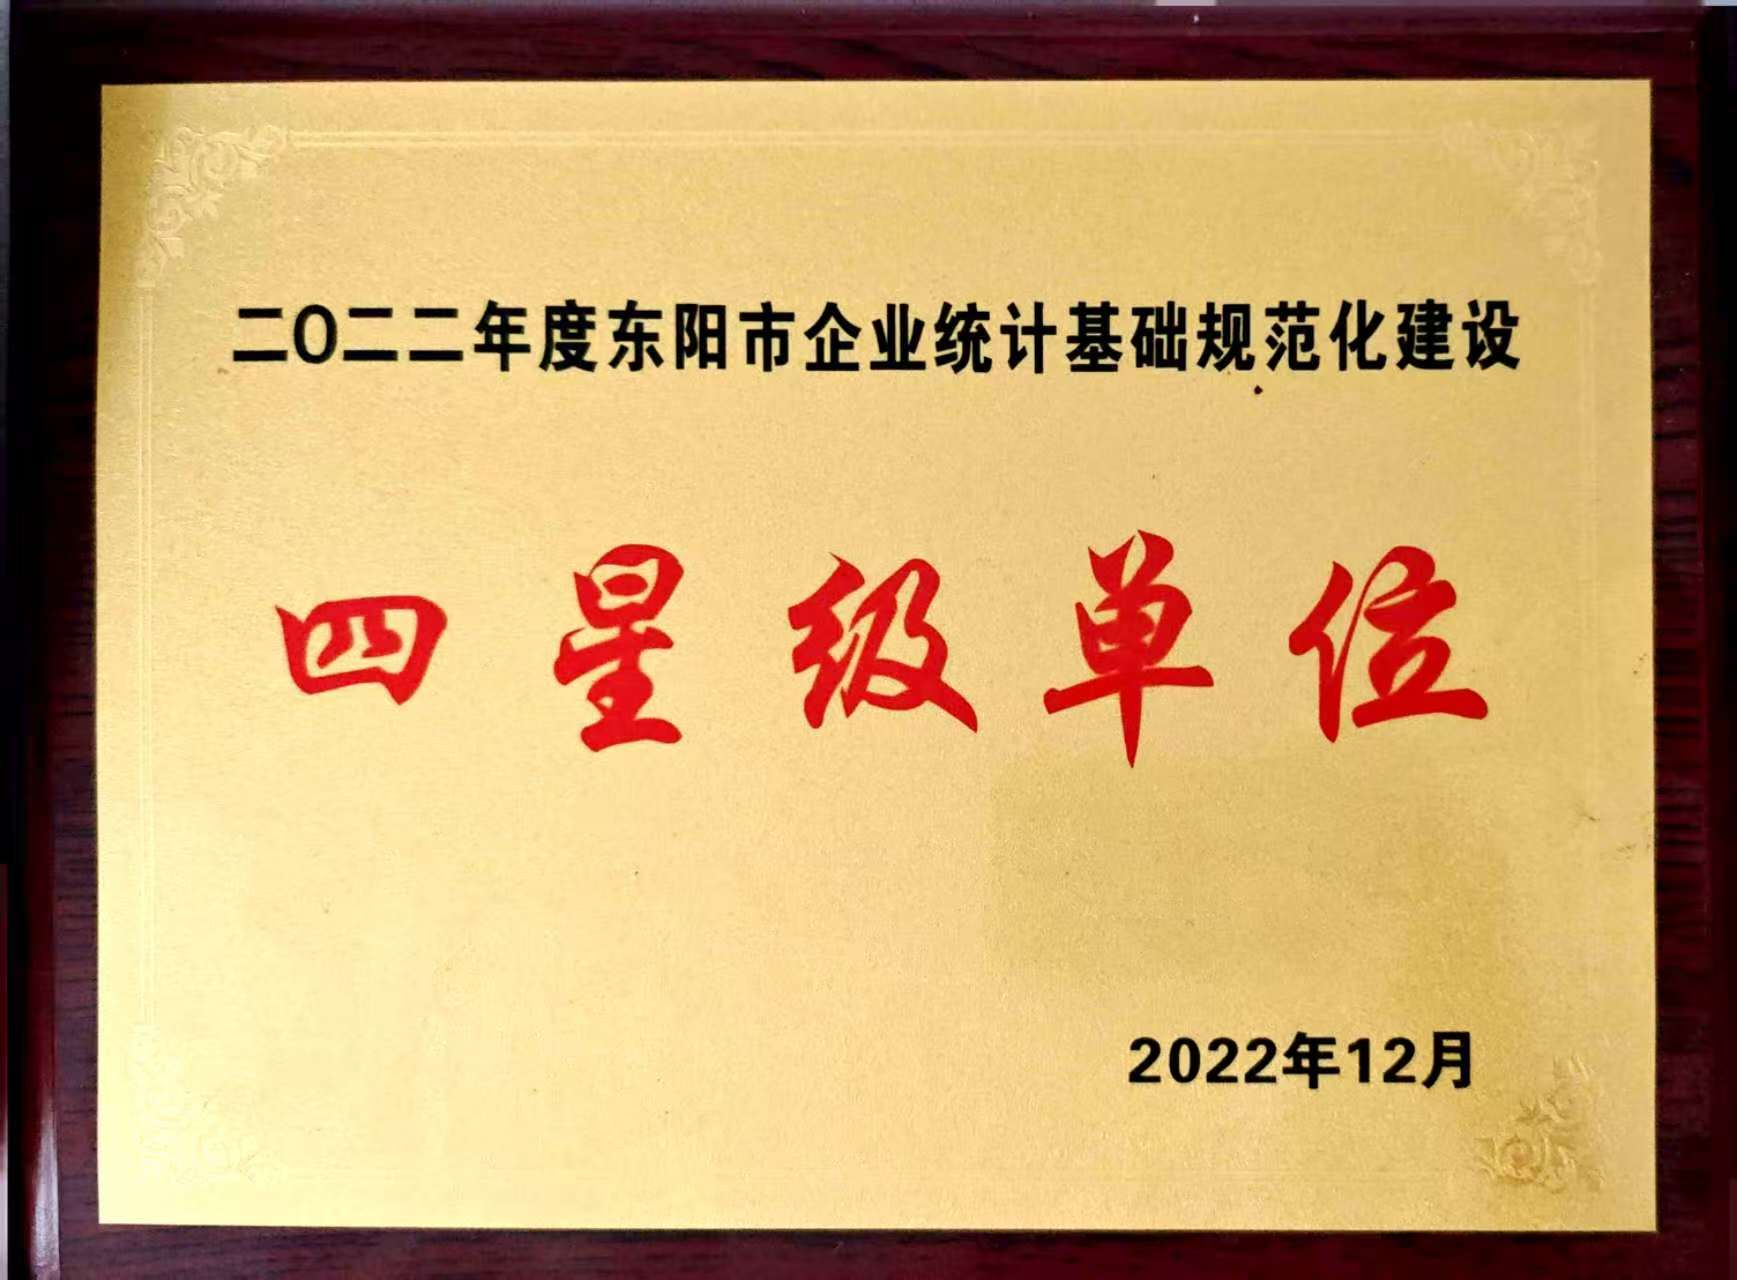 二〇二二年度东阳市企业统计基础规范化建设
四星级单位
2022年12月